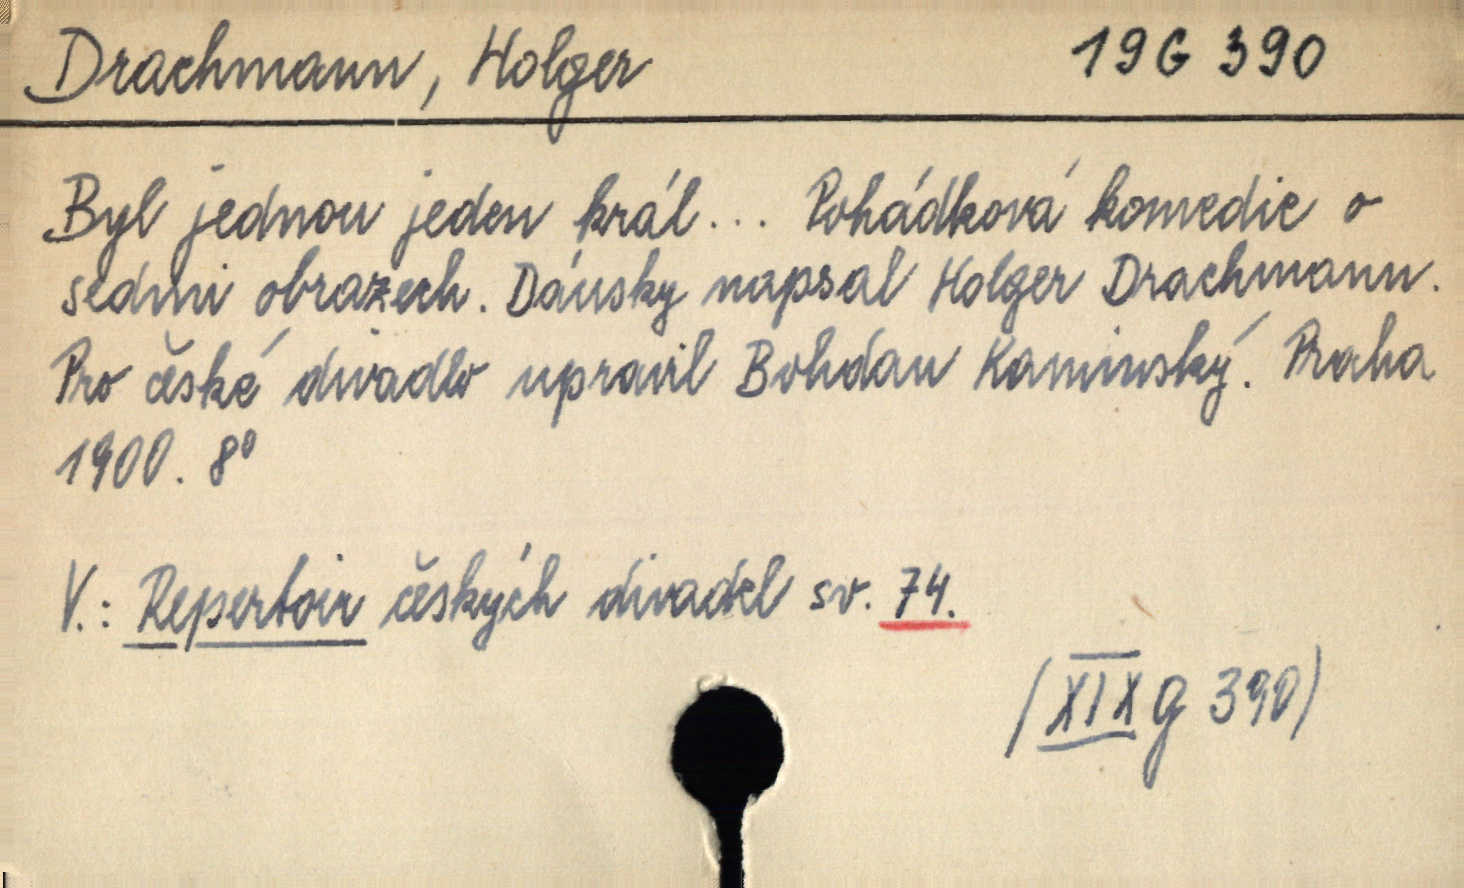 Drachmann, Holger 19G 390
Byl jednou jeden král... Pohádková komedie o
sedmi obrazech. Dánsky napsal Holger Drachmann.
Pro české divadlo upravil Bohdan Kaminský. Praha
1900. 8°
V.: Repertoir českých divadel sv. 74.
(XIX g 390)